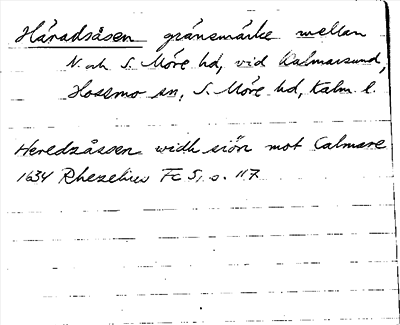 Häradsåsen gränsmärke mellan
N. och S. Möre hd, vid Kalmarsund,
Hossmo sn, S. Möre hd, Kalm. l.
Heredzåssen widh siön mot Calmare
1634 Rhezelius Fc 5, s. 117